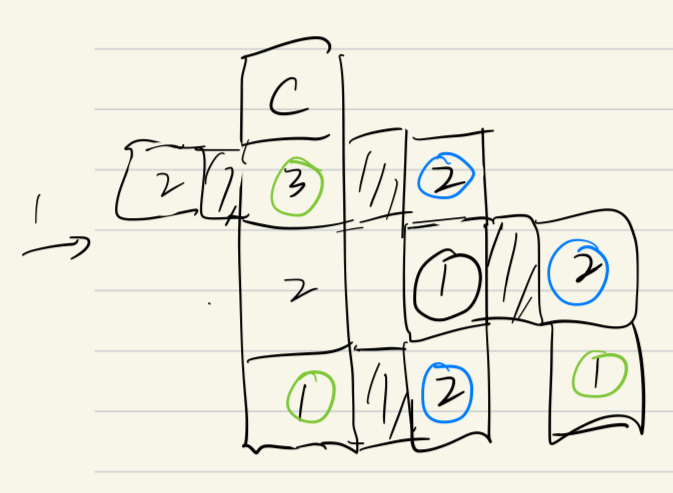 C
2 3 2
1
2 1 2
1 2 1